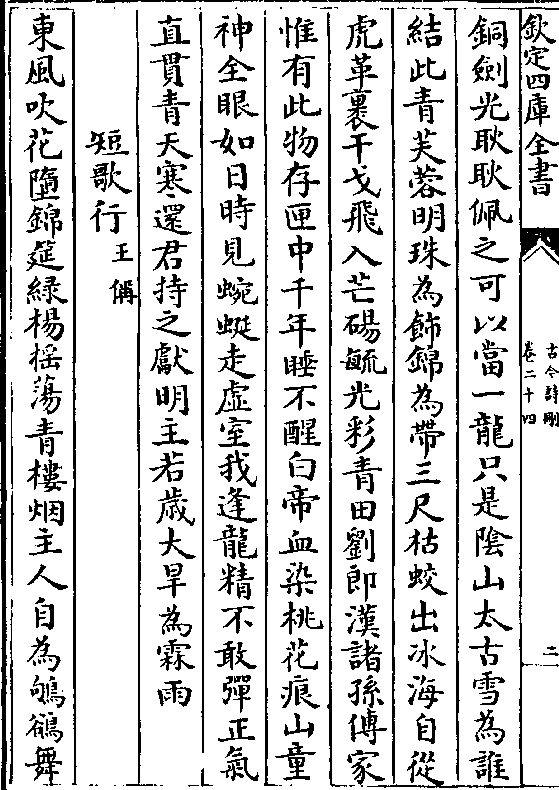 欽定四庫全書
古今詩刪
卷二十四
二
銅劒光耿耿佩之可以當一龍只是陰山太古雪為誰
結此青芙蓉明珠為飾錦為帶三尺枯蛟出冰海自從
虎革裹干戈飛入芒碭毓光彩青田劉郎漢諸孫傳家
惟有此物存匣中千年睡不醒白帝血染桃花痕山童
神全眼如日時見蜿蜒走虛室我逢龍精不敢彈正氣
直貫青天寒還君持之獻明主若歲大旱為霖雨
短歌行
王偁
東風吹花墮錦筵緑楊揺蕩青樓烟主人自為鴝鵒舞